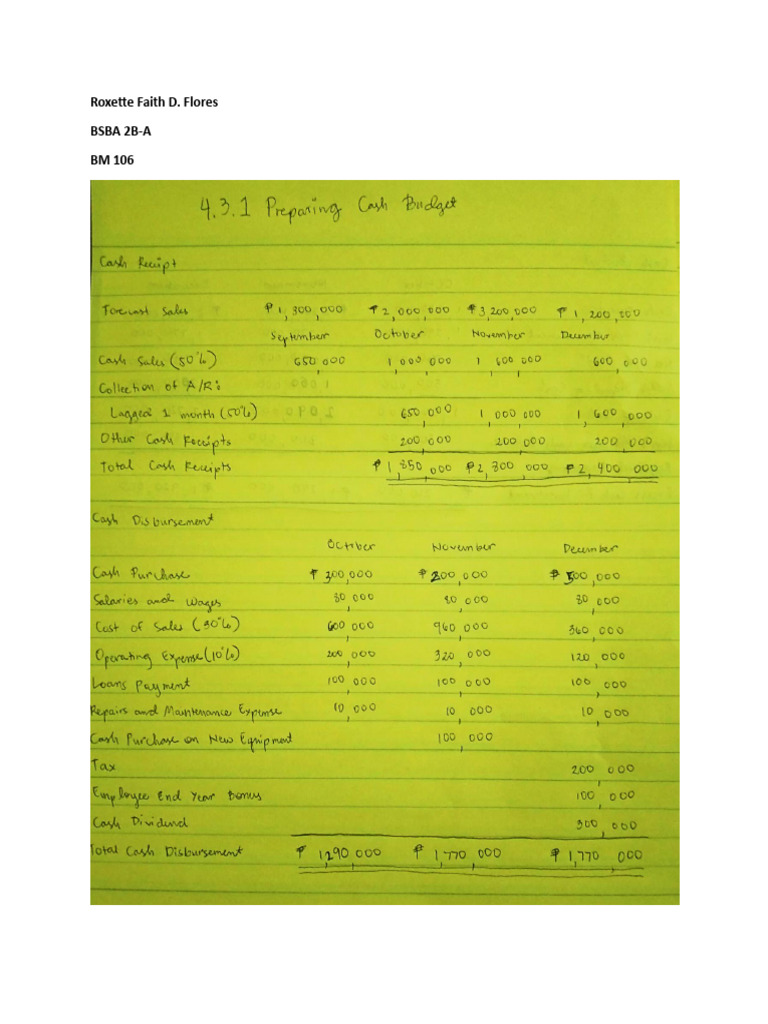 Roxette Faith D. Flores
BSBA 2B-A
BM 106
4.3.1 Preparing Cash Budget
Cash Receipt
Forecast Sales ₱1,300,000 ₱2,000,000 ₱3,200,000 ₱1,200,000
September October November December
Cash Sales (50%) 650,000 1,000,000 1,600,000 600,000
Collection of A/R:
Lagged 1 month (50%) 650,000 1,000,000 1,600,000
Other Cash Receipts 200,000 200,000 200,000
Total Cash Receipts ₱1,850,000 ₱2,800,000 ₱2,400,000
Cash Disbursement
October November December
Cash Purchase ₱300,000 ₱200,000 ₱500,000
Salaries and Wages 80,000 80,000 80,000
Cost of Sales (30%) 600,000 960,000 360,000
Operating Expense (10%) 200,000 320,000 120,000
Loans Payment 100,000 100,000 100,000
Repairs and Maintenance Expense 10,000 10,000 10,000
Cash Purchase on New Equipment 100,000
Tax 200,000
Employee End Year Bonus 100,000
Cash Dividend 300,000
Total Cash Disbursement ₱1,290,000 ₱1,770,000 ₱1,770,000